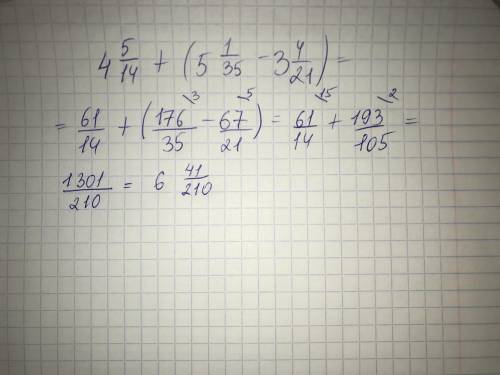 4 5/14 + (5 1/35 - 3 4/21) =
= 61/14 + (176/35 \3 - 67/21 \5) = 61/14 \15 + 193/105 \2 =
1301/210 = 6 41/210